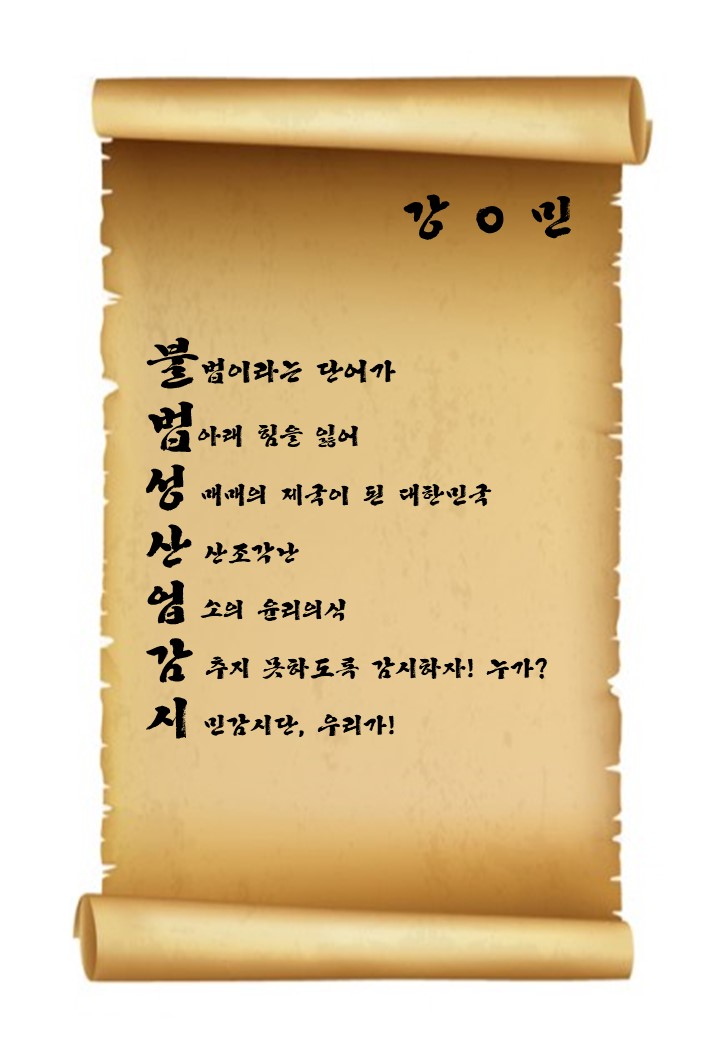 강 O 민
불법이라는 단어가
법아래 힘을 잃어
성 매매의 제국이 된 대한민국
산 산조각난
업 소의 윤리의식
감 추지 못하도록 감시하자! 누가?
시 민감시단, 우리가!